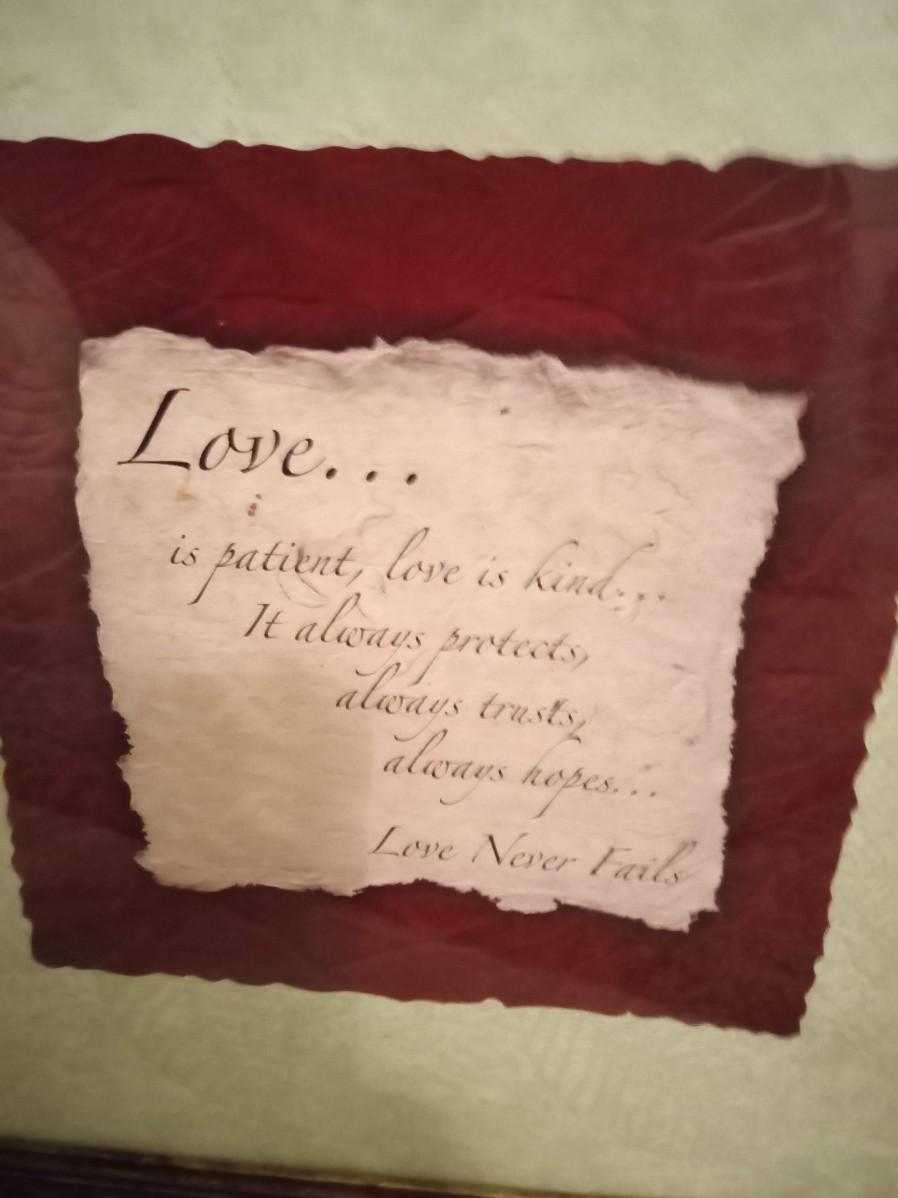 Love...
is patient, love is kind...
It always protects,
always trusts,
always hopes...
Love Never Fails